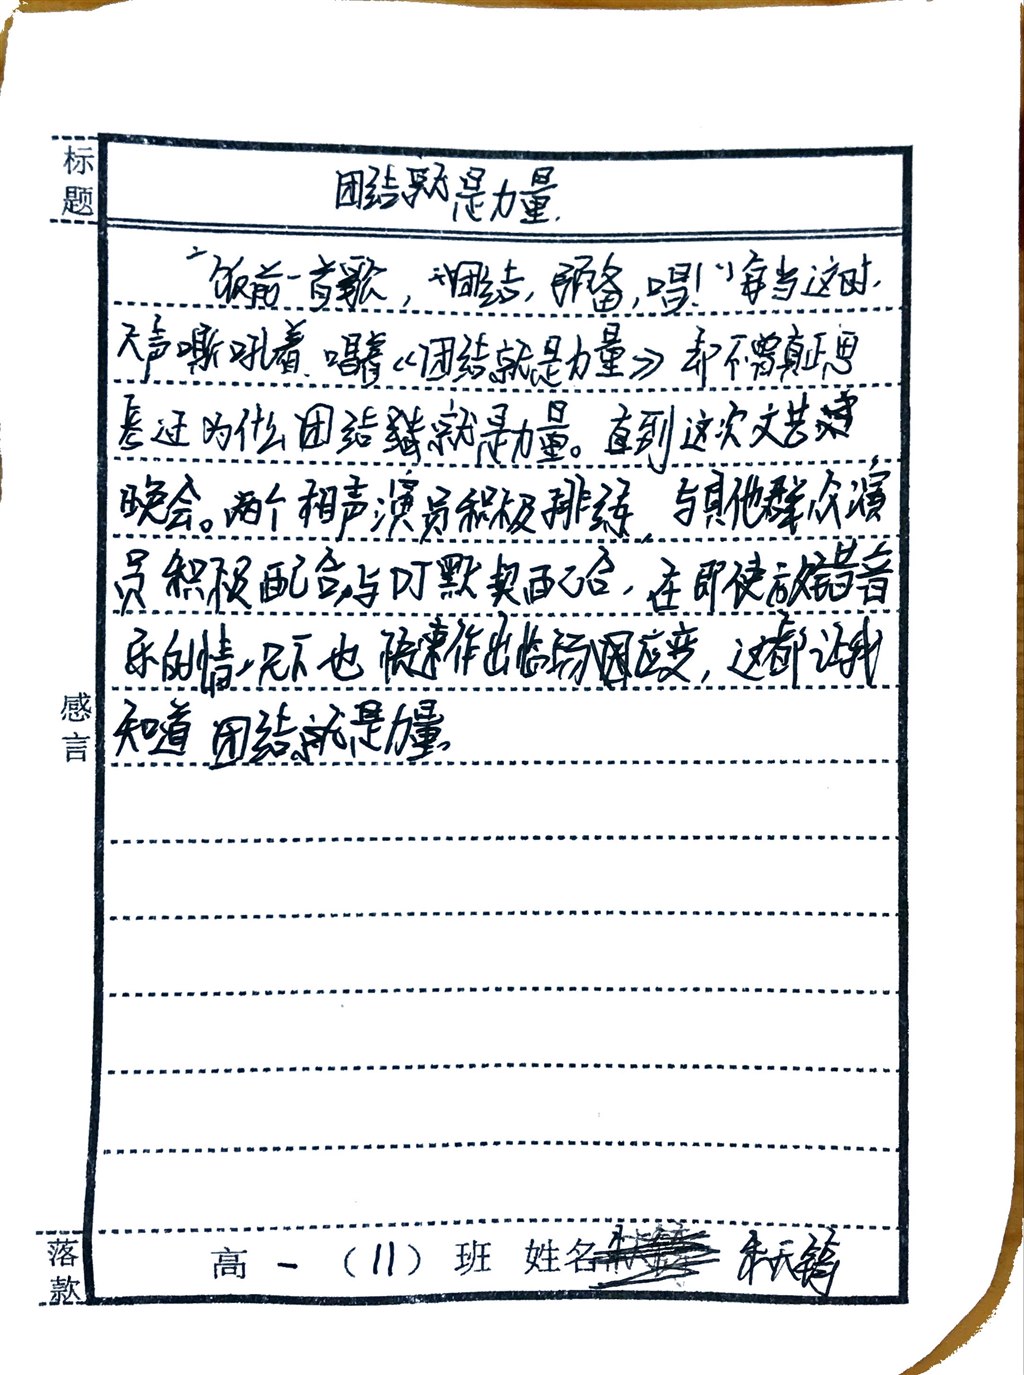 标题
团结就是力量.
“饭前一首歌，“团结，预备，唱！”每当这时，
大声嘶吼着 唱着《团结就是力量》却不曾真正思
考过为什么团结就是力量。直到这次文艺
晚会。两个相声演员积极排练，与其他群众演
员积极配合，与 默契配合，在即使放错音
乐的情况下也 作出临场应变，这都让我
知道 团结就是力量。
感言
落款
高一（11）班 姓名